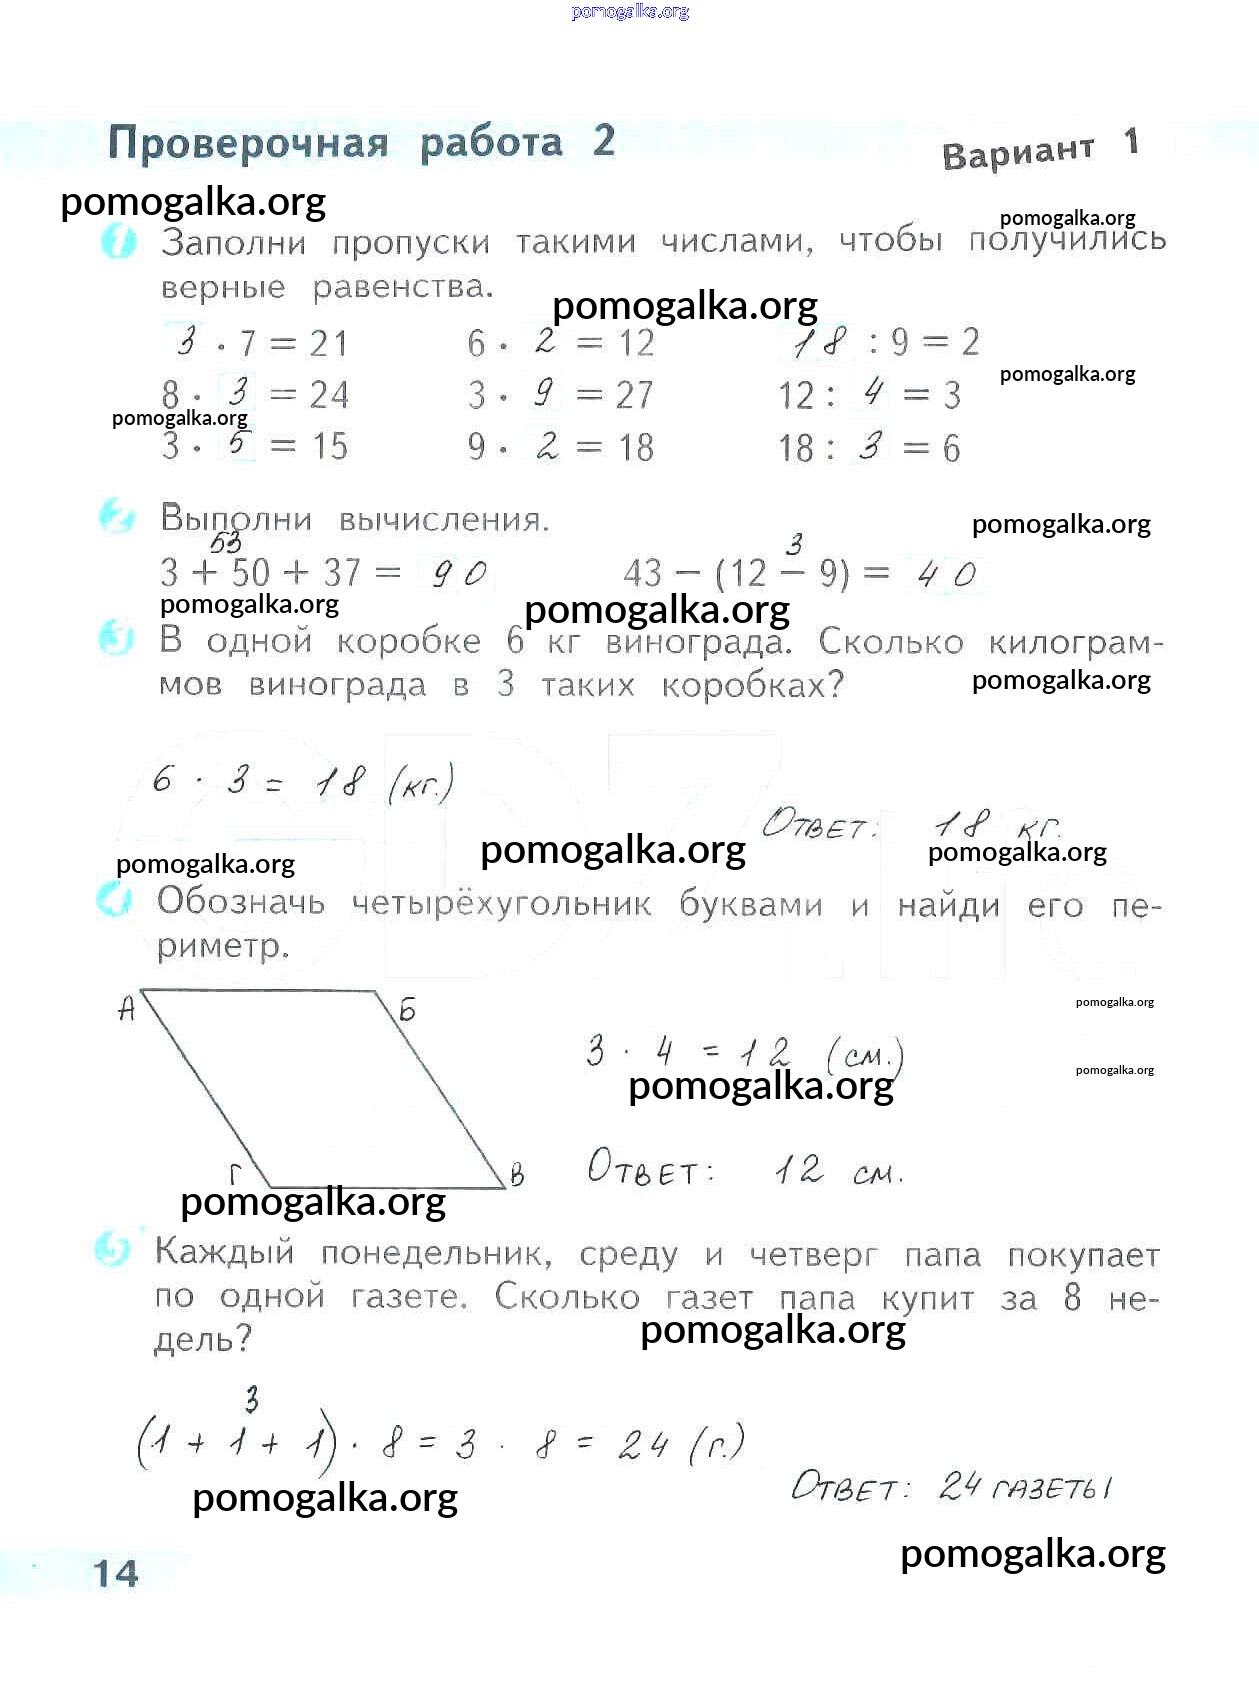 pomogalka.org
Проверочная работа 2
Вариант 1
pomogalka.org
pomogalka.org
1 Заполни пропуски такими числами, чтобы получились
верные равенства.
pomogalka.org
3 · 7 = 21 6 · 2 = 12 18 : 9 = 2
pomogalka.org
8 · 3 = 24 3 · 9 = 27 12 : 4 = 3
pomogalka.org
3 · 5 = 15 9 · 2 = 18 18 : 3 = 6
2 Выполни вычисления.
pomogalka.org
53 3
3 + 50 + 37 = 90 43 − (12 − 9) = 40
pomogalka.org pomogalka.org
3 В одной коробке 6 кг винограда. Сколько килограм-
мов винограда в 3 таких коробках?
pomogalka.org
6 · 3 = 18 (кг.)
Ответ: 18 кг.
pomogalka.org pomogalka.org pomogalka.org
4 Обозначь четырёхугольник буквами и найди его пе-
риметр.
А Б
pomogalka.org
3 · 4 = 12 (см.)
pomogalka.org
pomogalka.org
Г В
Ответ: 12 см.
pomogalka.org
5 Каждый понедельник, среду и четверг папа покупает
по одной газете. Сколько газет папа купит за 8 не-
дель?
pomogalka.org
3
(1 + 1 + 1) · 8 = 3 · 8 = 24 (г.)
Ответ: 24 газеты
pomogalka.org
pomogalka.org
14